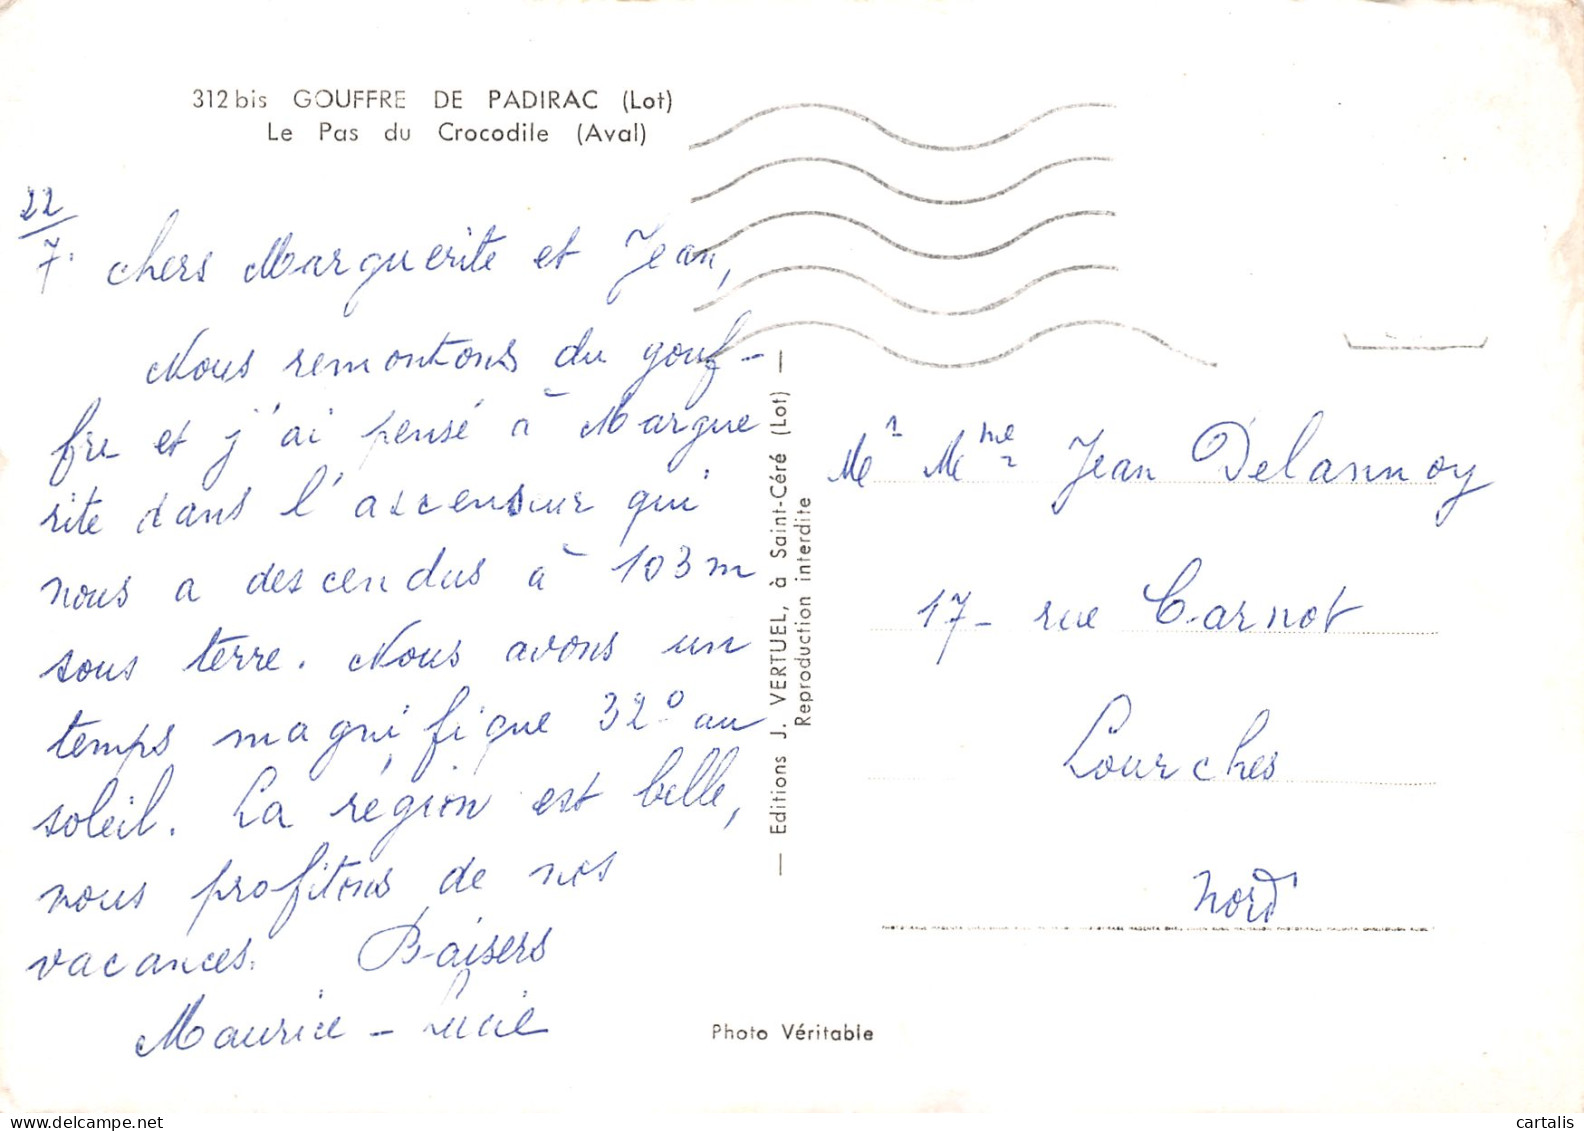 312 bis GOUFFRE DE PADIRAC (Lot)
Le Pas du Crocodile (Aval)
22/7.
Chers Marguerite et Jean,
Nous remontons du gouf-
fre et j'ai pensé à Margue
rite dans l'ascenseur qui
nous a descendus à 103m
sous terre. Nous avons un
temps magnifique 32° au
soleil. La région est belle,
nous profitons de nos
vacances. Baisers
Maurice - Lucie
— Editions J. VERTUEL, à Saint-Céré (Lot) —
Reproduction interdite
Mr Mme Jean Delannoy
17- rue Carnot
Lourches
Nord
Photo Véritable
cartalis